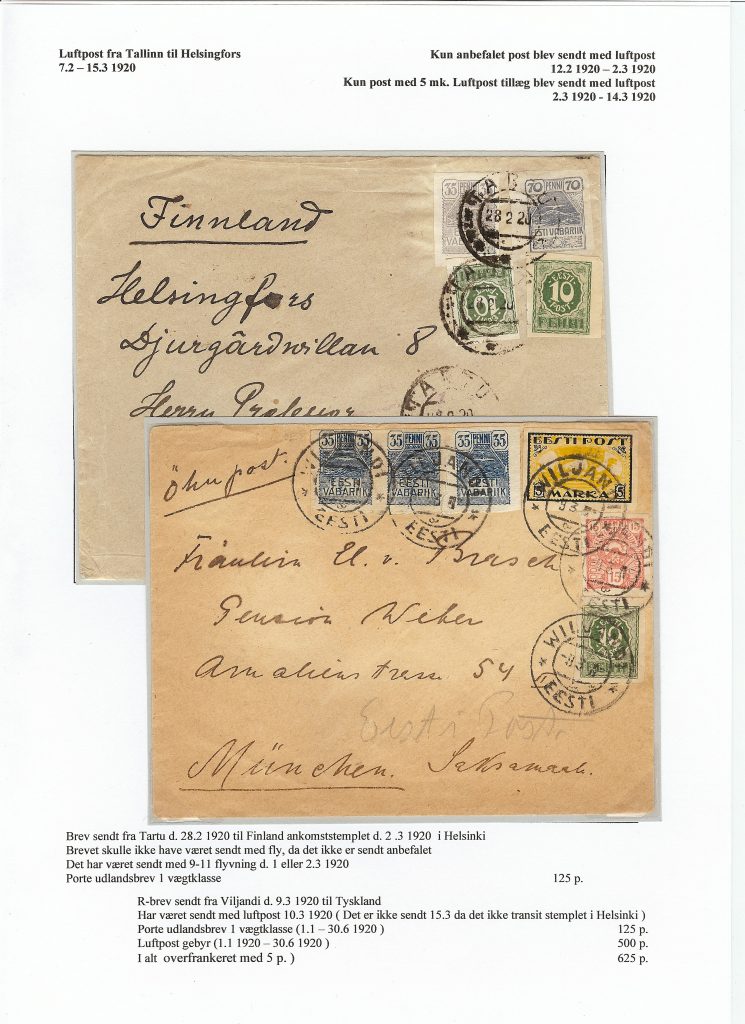 Luftpost fra Tallinn til Helsingfors
7.2 – 15.3 1920
Kun anbefalet post blev sendt med luftpost
12.2 1920 – 2.3 1920
Kun post med 5 mk. Luftpost tillæg blev sendt med luftpost
2.3 1920 - 14.3 1920
35 PENNI
70 PENNI 70
EESTI VABARIIK
28 2 20
EESTI
10
POST
PENNI
Finnland
Helsingfors
Djurgårdwillan 8
Herrn Professor
TARTU
35 PENNI 35
EESTI
VABARIIK
35 PENNI 35
EESTI
VABARIIK
35 PENNI 35
EESTI
VABARIIK
EESTI POST
5 MARKA 5
WILJANDI
EESTI
WILJANDI
EESTI
WILJANDI
EESTI
15
EESTI
10
WILJANDI
EESTI
Õhu post.
Fräulein U. v. Brasch
Pension Weber
Amalienstrasse 54
Eesti Post.
München. Saksamaal.
Brev sendt fra Tartu d. 28.2 1920 til Finland ankomststemplet d. 2 .3 1920 i Helsinki
Brevet skulle ikke have været sendt med fly, da det ikke er sendt anbefalet
Det har været sendt med 9-11 flyvning d. 1 eller 2.3 1920
Porte udlandsbrev 1 vægtklasse 125 p.
R-brev sendt fra Viljandi d. 9.3 1920 til Tyskland
Har været sendt med luftpost 10.3 1920 ( Det er ikke sendt 15.3 da det ikke transit stemplet i Helsinki )
Porte udlandsbrev 1 vægtklasse (1.1 – 30.6 1920 ) 125 p.
Luftpost gebyr (1.1 1920 – 30.6 1920 ) 500 p.
I alt overfrankeret med 5 p. ) 625 p.